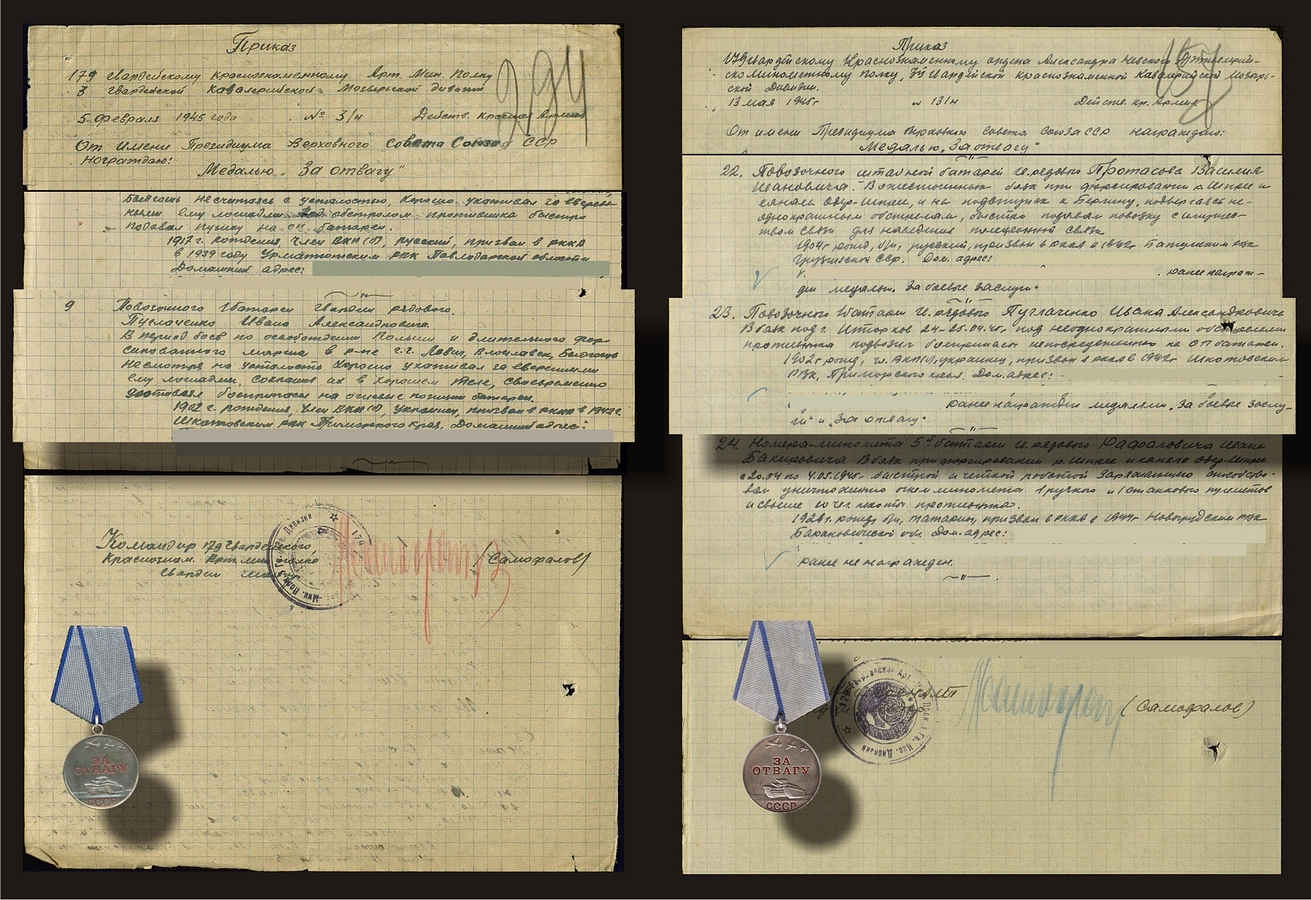 Приказ
179 гвардейскому Краснознаменному Арт. Мин. Полку
3 гвардейской Кавалерийской Мозырьской дивизии
294
5 февраля 1945 года № 3/н Действ. Красная Армия
От имени Президиума Верховного Совета Союза ССР
Награждаю:
Медалью „За отвагу"
несчитаясь с усталостью, хорошо ухаживал за
ему лошадьми, обстрелом противника быстро
подавал пушку на оп батареи.
1917 г. рождения, член ВКП(б), русский, призван в РККА
в 1939 году Урлютюпским РВК Павлодарской области
Домашний адрес:
9 Повозочного батареи гвардии рядового
Пугаченко Ивана Александровича.
В период боев по освобождении Польши и длительного фор-
сированного марша в р-не г.г. Лович, Влоцлавек,
несмотря на усталость хорошо ухаживал за вверенными
ему лошадьми, сохранил их в хорошем теле, своевременно
доставлял боеприпасы на огневые позиции батареи.
1902 г. рождения, член ВКП(б), Украинец, призван в РККА в 1942г.
Шкотовским РВК Приморского края. Домашний адрес:
Командир 179 Гвардейского,
Краснознам. Арт. мин полка
Гвардии
(Самофалов)
ЗА
ОТВАГУ
СССР
Приказ
179 гвардейскому Краснознаменному ордена Александра Невского Артиллерий-
ско минометному полку, 3й Гвардейской Краснознаменной Кавалерийской Мозырь-
ской Дивизии.
13 мая 1945г № 13/н Действ. кр. Армия
От имени Президиума Верховного Совета Союза ССР награждаю:
Медалью „За отвагу"
22. Повозочного штабной батареи гв. рядового Протасова Василия
Ивановича. В ожесточенных боях при форсировании р. Шпрее и
канала Одер-Шпрее, и на подступах к Берлину, подвергаясь не-
однократным обстрелам, быстро подавал повозку с имущес-
твом связи для наведения телефонной связи
1904г рожд, б/п, русский, призван в РККА в 1942г Батумским РВК
Грузинской ССР. Дом. адрес:
г. ранее награж-
ден медалью „За боевые заслуги"
23. Повозочного батареи Гв. рядового Пугаченко Ивана Александровича
В боях под г. Шторков 24-25.04.45г. под неоднократными обстрелами
противника подвозил боеприпасы непосредственно на ОП батареи.
1902г рожд, чл. ВКП(б), украинец, призван в РККА в 1942г. Шкотовским
РВК, Приморского края. Дом. адрес:
ранее награжден медалями „За боевые заслу-
ги" и „За отвагу"
24. Номера-миномета 5й батареи Гв. рядового Рафаловича Ивана
В боях при форсировании р. Шпрее и канала Одер-Шпрее
с 20.04 по 4.05.1945г. быстрой и четкой работой заряжающего способство-
вал уничтожению огнем миномета 1 ручного и 1 станкового пулеметов
и свыше 10 чел пехоты противника.
рожд, б/п, татарин, призван в РККА в 1944г Новогрудским РВК
Барановичской обл. Дом. адрес:
ранее не награжден.
(Самофалов)
ЗА
ОТВАГУ
СССР